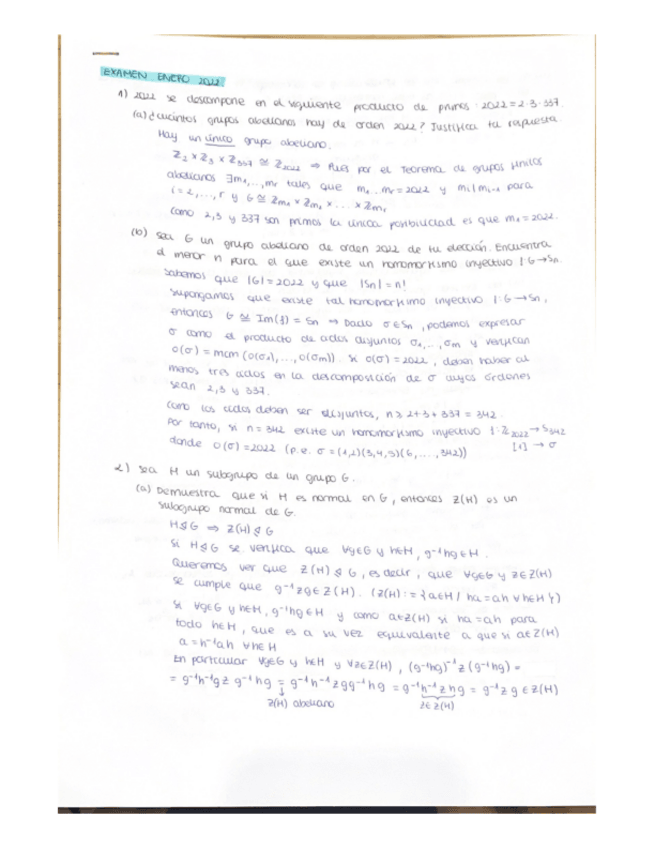 EXAMEN ENERO 2022
1) 2022 se descompone en el siguiente producto de primos: 2022 = 2·3·337.
(a) ¿Cuántos grupos abelianos hay de orden 2022? Justifica tu respuesta.
Hay un único grupo abeliano.
ℤ₂ × ℤ₃ × ℤ₃₃₇ ≅ ℤ₂₀₂₂ ⇒ Pues por el Teorema de grupos finitos
abelianos ∃m₁,...,mr tales que m₁...mr = 2022 y mi | mi-1 para
i = 2,...,r y G ≅ ℤm₁ × ℤm₂ × ... × ℤmr
Como 2,3 y 337 son primos la única posibilidad es que m₁ = 2022.
(b) Sea G un grupo abeliano de orden 2022 de tu elección. Encuentra
el menor n para el que existe un homomorfismo inyectivo f: G → Sn.
Sabemos que |G| = 2022 y que |Sn| = n!
Supongamos que existe tal homomorfismo inyectivo f: G → Sn,
entonces G ≅ Im(f) = Sn ⇒ Dado σ ∈ Sn, podemos expresar
σ como el producto de ciclos disjuntos σ₁,...,σm y verifican
o(σ) = mcm (o(σ₁),...,o(σm)). Si o(σ) = 2022, deben haber al
menos tres ciclos en la descomposición de σ cuyos órdenes
sean 2,3 y 337.
Como los ciclos deben ser disjuntos, n ≥ 2+3+337 = 342.
Por tanto, si n = 342 existe un homomorfismo inyectivo f: ℤ₂₀₂₂ → S₃₄₂
donde o(σ) = 2022 (p.e. σ = (1,2)(3,4,5)(6,...,342)) [1] → σ
2) Sea H un subgrupo de un grupo G.
(a) Demuestra que si H es normal en G, entonces Z(H) es un
subgrupo normal de G.
H ⊴ G ⇒ Z(H) ⊴ G
Si H ⊴ G se verifica que ∀g∈G y h∈H, g⁻¹hg ∈ H.
Queremos ver que Z(H) ⊴ G, es decir, que ∀g∈G y z∈Z(H)
se cumple que g⁻¹zg ∈ Z(H). (Z(H) := {a∈H / ha = ah ∀h∈H})
Si ∀g∈G y h∈H, g⁻¹hg∈H y como a∈Z(H) si ha = ah para
todo h∈H, que es a su vez equivalente a que si a∈Z(H)
a = h⁻¹ah ∀h∈H
En particular ∀g∈G y h∈H y ∀z∈Z(H), (g⁻¹hg)⁻¹z(g⁻¹hg) =
= g⁻¹h⁻¹gz g⁻¹hg = g⁻¹h⁻¹zgg⁻¹hg = g⁻¹h⁻¹zhg = g⁻¹zg ∈ Z(H)
Z(H) abeliano z∈Z(H)